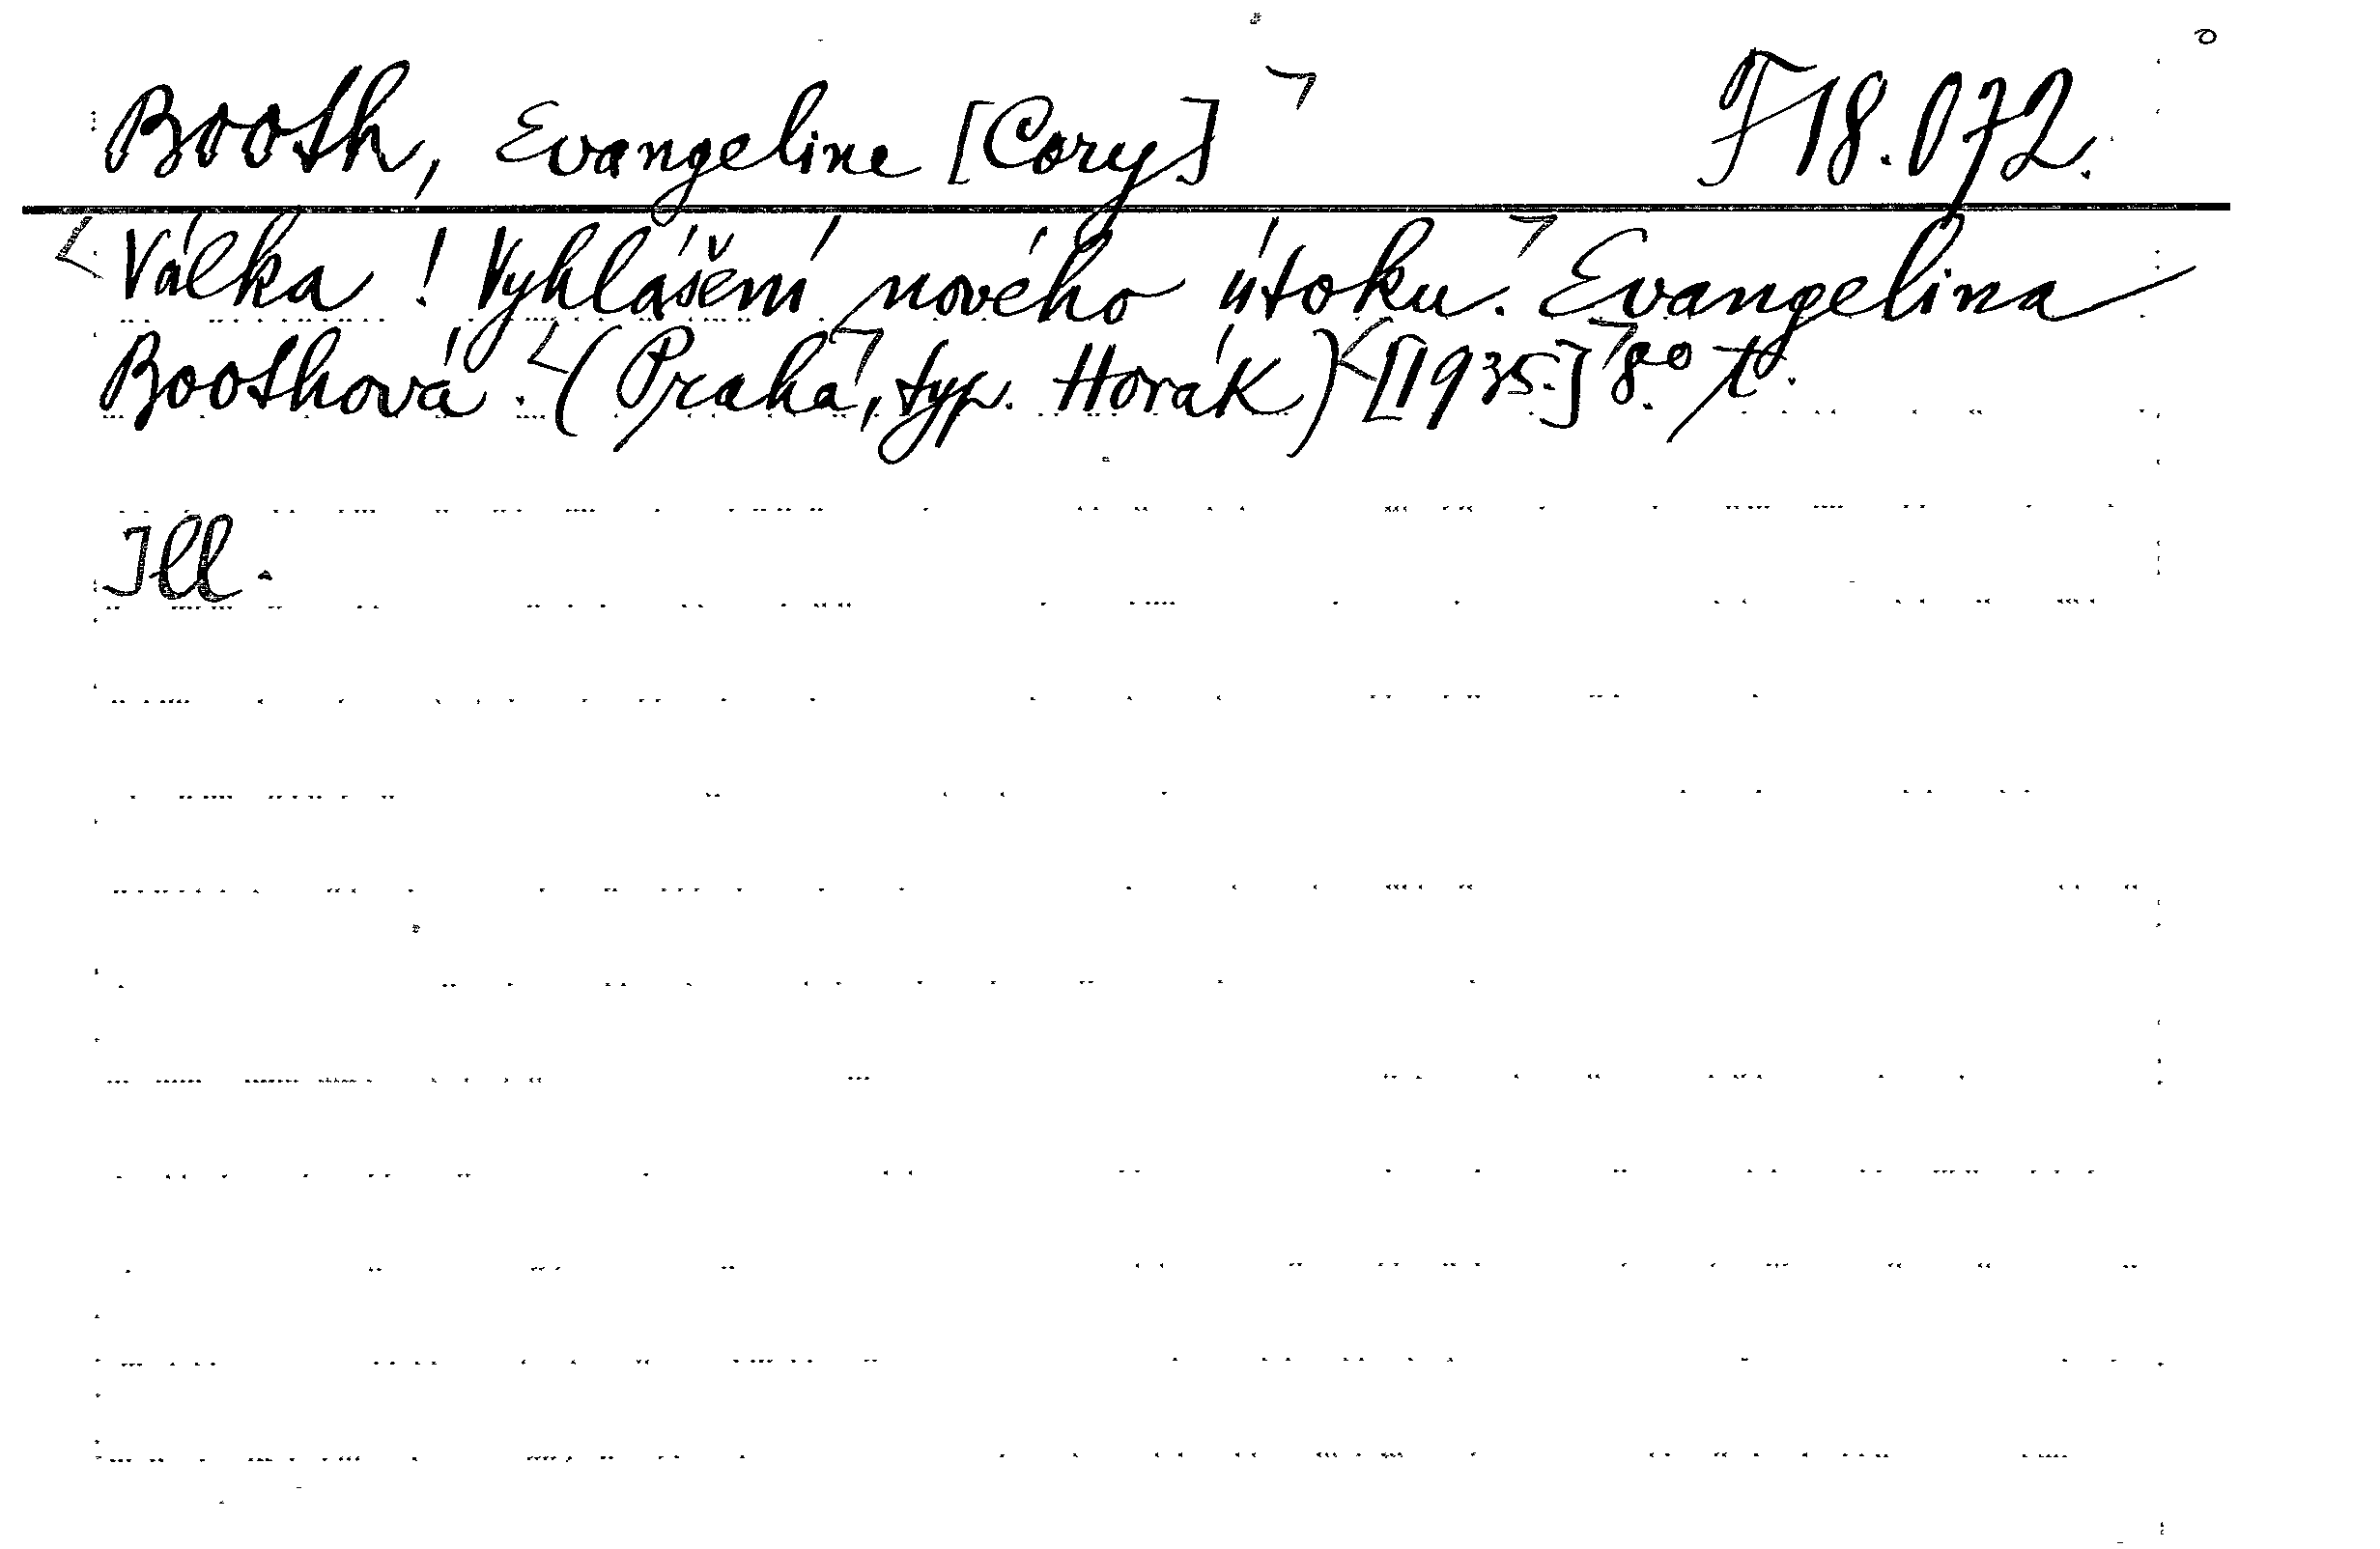 Booth, Evangeline [Cory] F 18.072.
Válka! Vyhlášení nového útoku. Evangelina
Boothová. (Praha, typ. Horák) [1935.] 8º.
Ill.